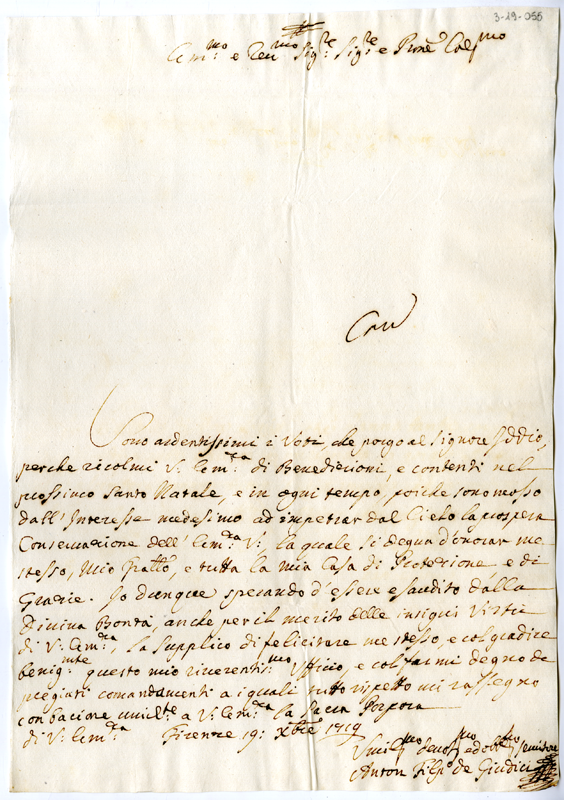 3-19-055
Em:mo e Reu:mo Sig:re Sig:re e Prõne Col:mo
Sono ardentissimi i Voti, che porgo al Signore Iddio,
perche ricolmi V: Em:za di Benedizioni, e contenti nel
prossimo Santo Natale, e in ogni tempo, poiche sono mosso
dall' Interesse medesimo ad impetrar dal Cielo la prospera
Conservazione dell' Em:za V: la quale si degna d'onorar me
stesso, Mio Fratlo, e tutta la mia Casa di Protezione e di
Grazie. Io dunque sperando d'essere esaudito dalla
Divina Bontà, anche per il merito delle insigni Virtù
di V: Em:za, la supplico di felicitare me stesso, e col gradire
benig:mte questo mio riverentis:mo Uffizio, e col farmi degno de
pregiati comandamenti a i quali tutto rispetto mi rassegno
con bacione umilte a V: Em:za la Sacra Porpora
di V: Em:za Firenze 19: Xbre 1719
Umil:mo Deuo:mo ed obb:mo Seruitore
Anton Fil:po de Giudici